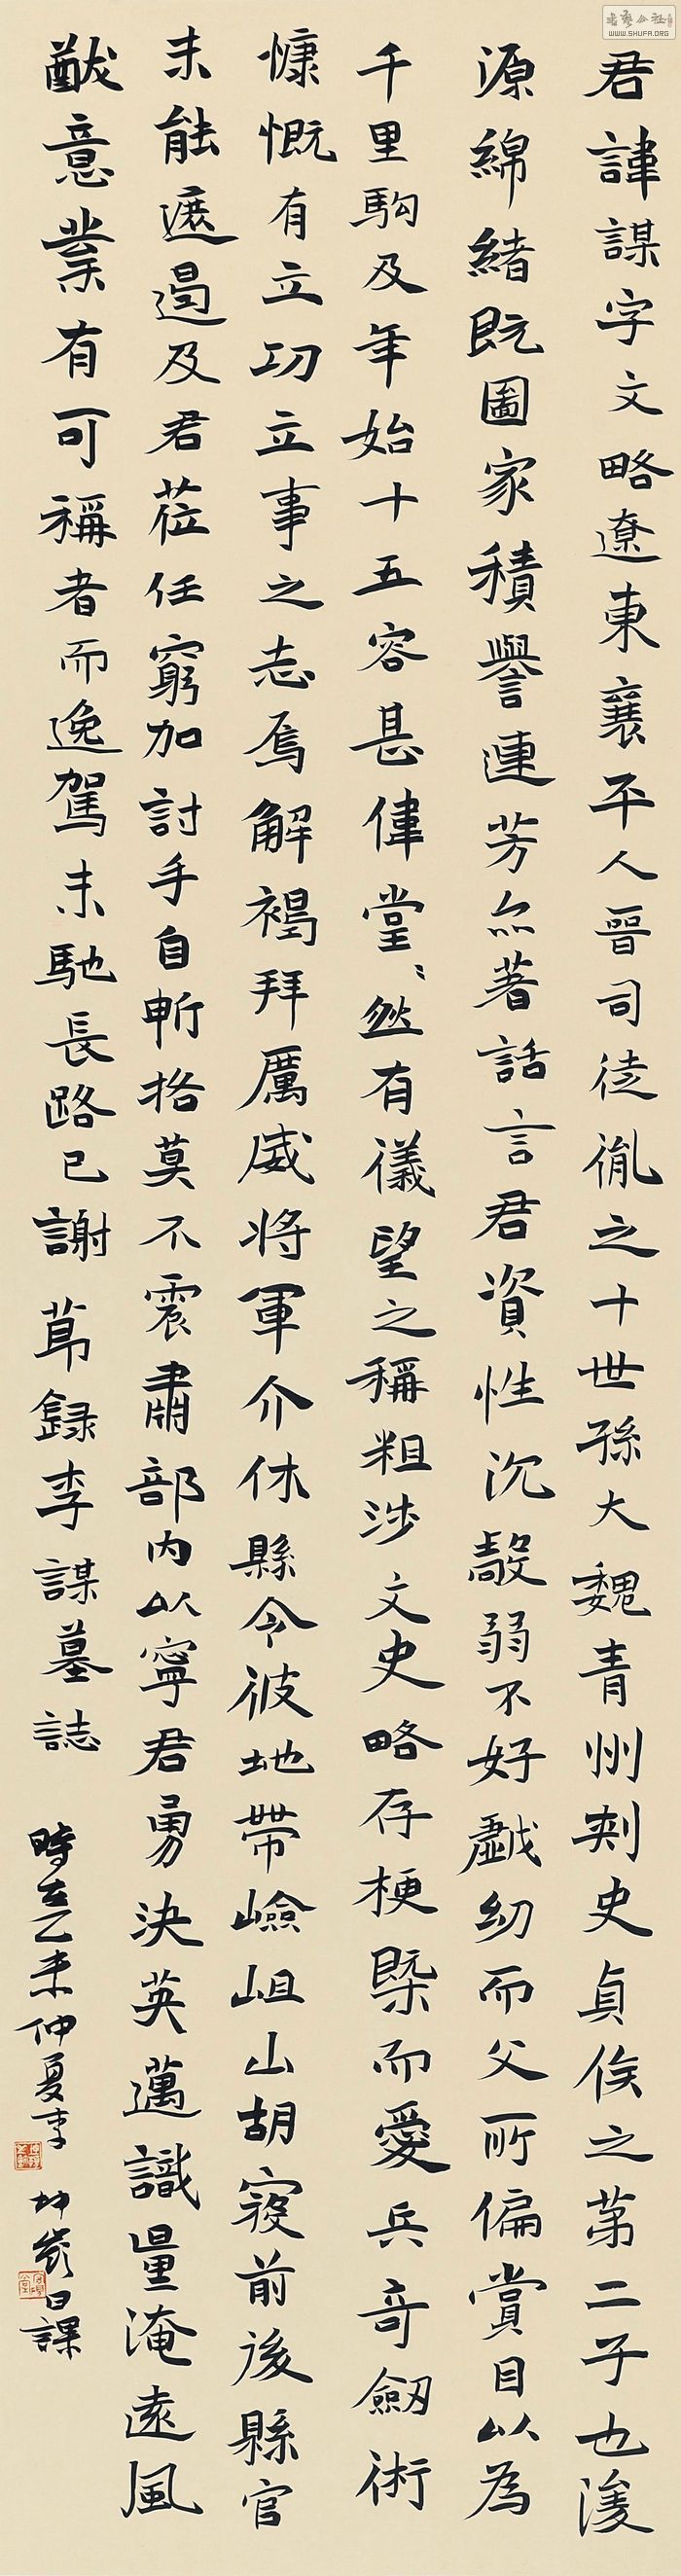 君諱謀字文略遼東襄平人晉司徒胤之十世孫大魏青州刺史貞侯之第二子也浚
源綿緒既圖家積譽連芳亦著話言君資性沉毅弱不好戲幼而父所偏賞目以為
千里駒及年始十五容甚偉堂〻然有儀望之稱粗涉文史略存梗槩而愛兵奇劒術
慷慨有立功立事之志焉解褐拜厲威將軍介休縣令彼地帶嶮岨山胡寇前後縣官
未能遮遏及君莅任窮加討手自斬挌莫不震肅部內以寧君勇決英邁識量淹遠風
猷意業有可稱者而逸駕未馳長路已謝 節錄李謀墓誌 時在乙未仲夏李坤嶺日課
WWW.SHUFA.ORG